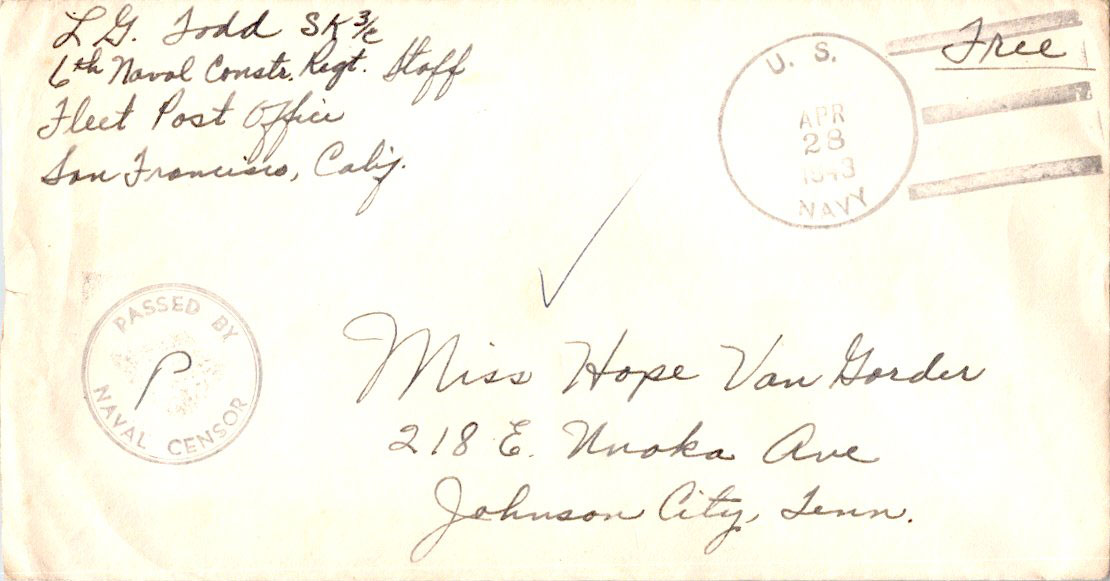 L G. Todd SK 3/c
6th Naval Constr. Regt. Staff
Fleet Post Office
San Francisco, Calif.
Free
U. S.
APR
28
1943
NAVY
PASSED BY
P
NAVAL CENSOR
Miss Hope Van Gorder
218 E. Unaka Ave
Johnson City, Tenn.